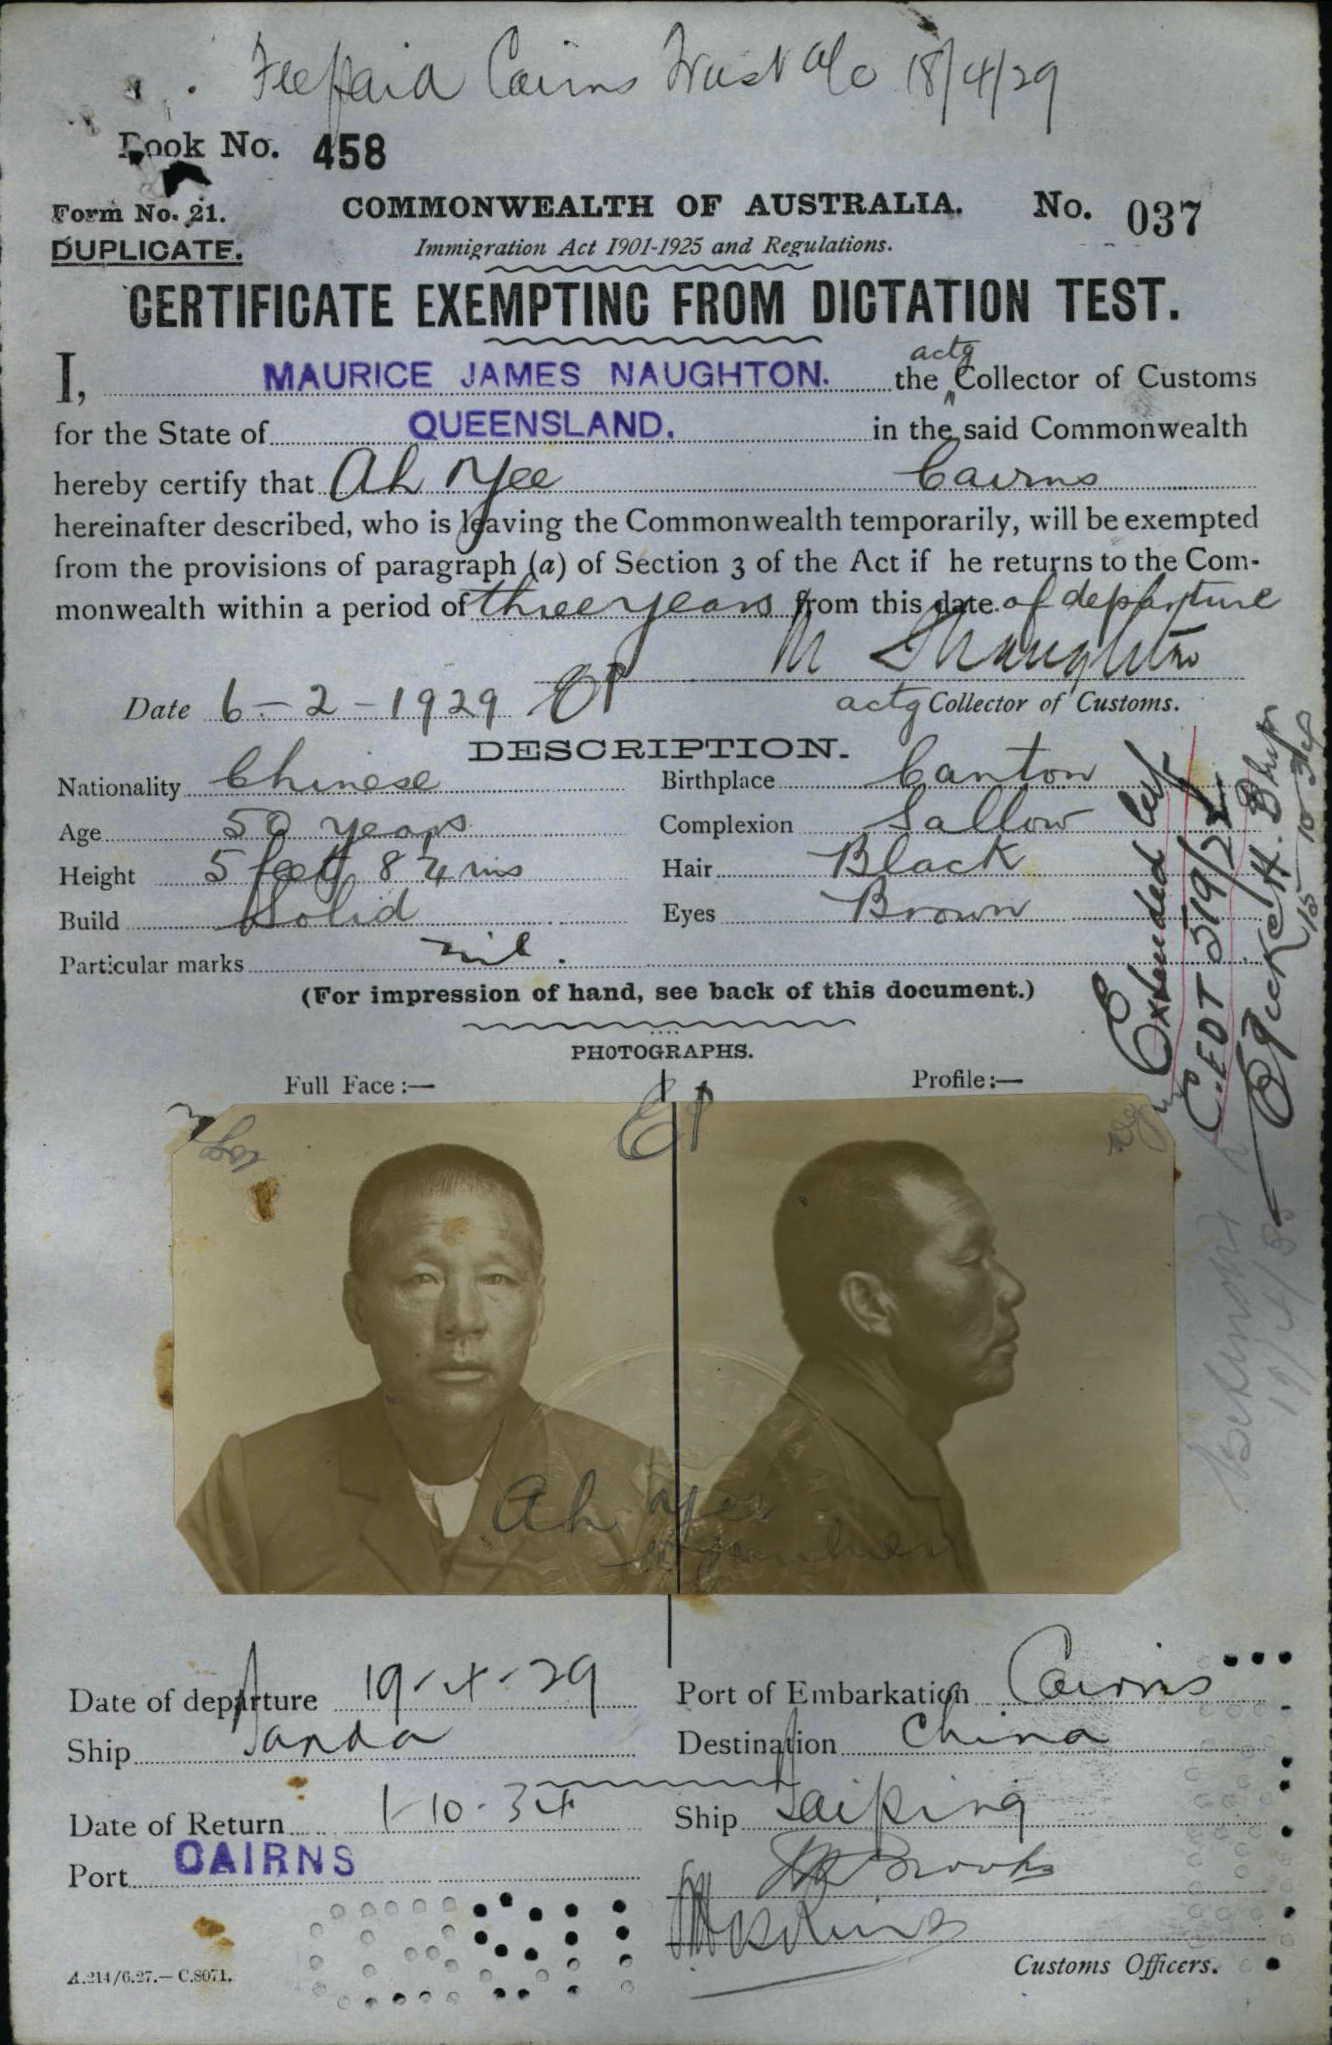 Feepaid Cairns Trust a/c 18/4/29
Book No. 458
Form No. 21. COMMONWEALTH OF AUSTRALIA. No. 037
DUPLICATE. Immigration Act 1901-1925 and Regulations.
CERTIFICATE EXEMPTING FROM DICTATION TEST.
I, MAURICE JAMES NAUGHTON. the actg Collector of Customs
for the State of QUEENSLAND. in the said Commonwealth
hereby certify that Ah Yee Cairns
hereinafter described, who is leaving the Commonwealth temporarily, will be exempted
from the provisions of paragraph (a) of Section 3 of the Act if he returns to the Com-
monwealth within a period of three years from this date of departure
Date 6-2-1929 actg Collector of Customs.
DESCRIPTION.
Nationality Chinese Birthplace Canton
Age 50 years Complexion Sallow
Height 5 feet 8¼ ins Hair Black
Build Solid Eyes Brown
Particular marks nil.
(For impression of hand, see back of this document.)
PHOTOGRAPHS.
Full Face:— Profile:—
Extended
CEDT
Ah Yee
Date of departure 19-4-29 Port of Embarkation Cairns
Ship Tanda Destination China
Date of Return 1-10-34 Ship Taiping
Port CAIRNS
Brooks
Hoskins
A.214/6.27.—C.8071. Customs Officers.